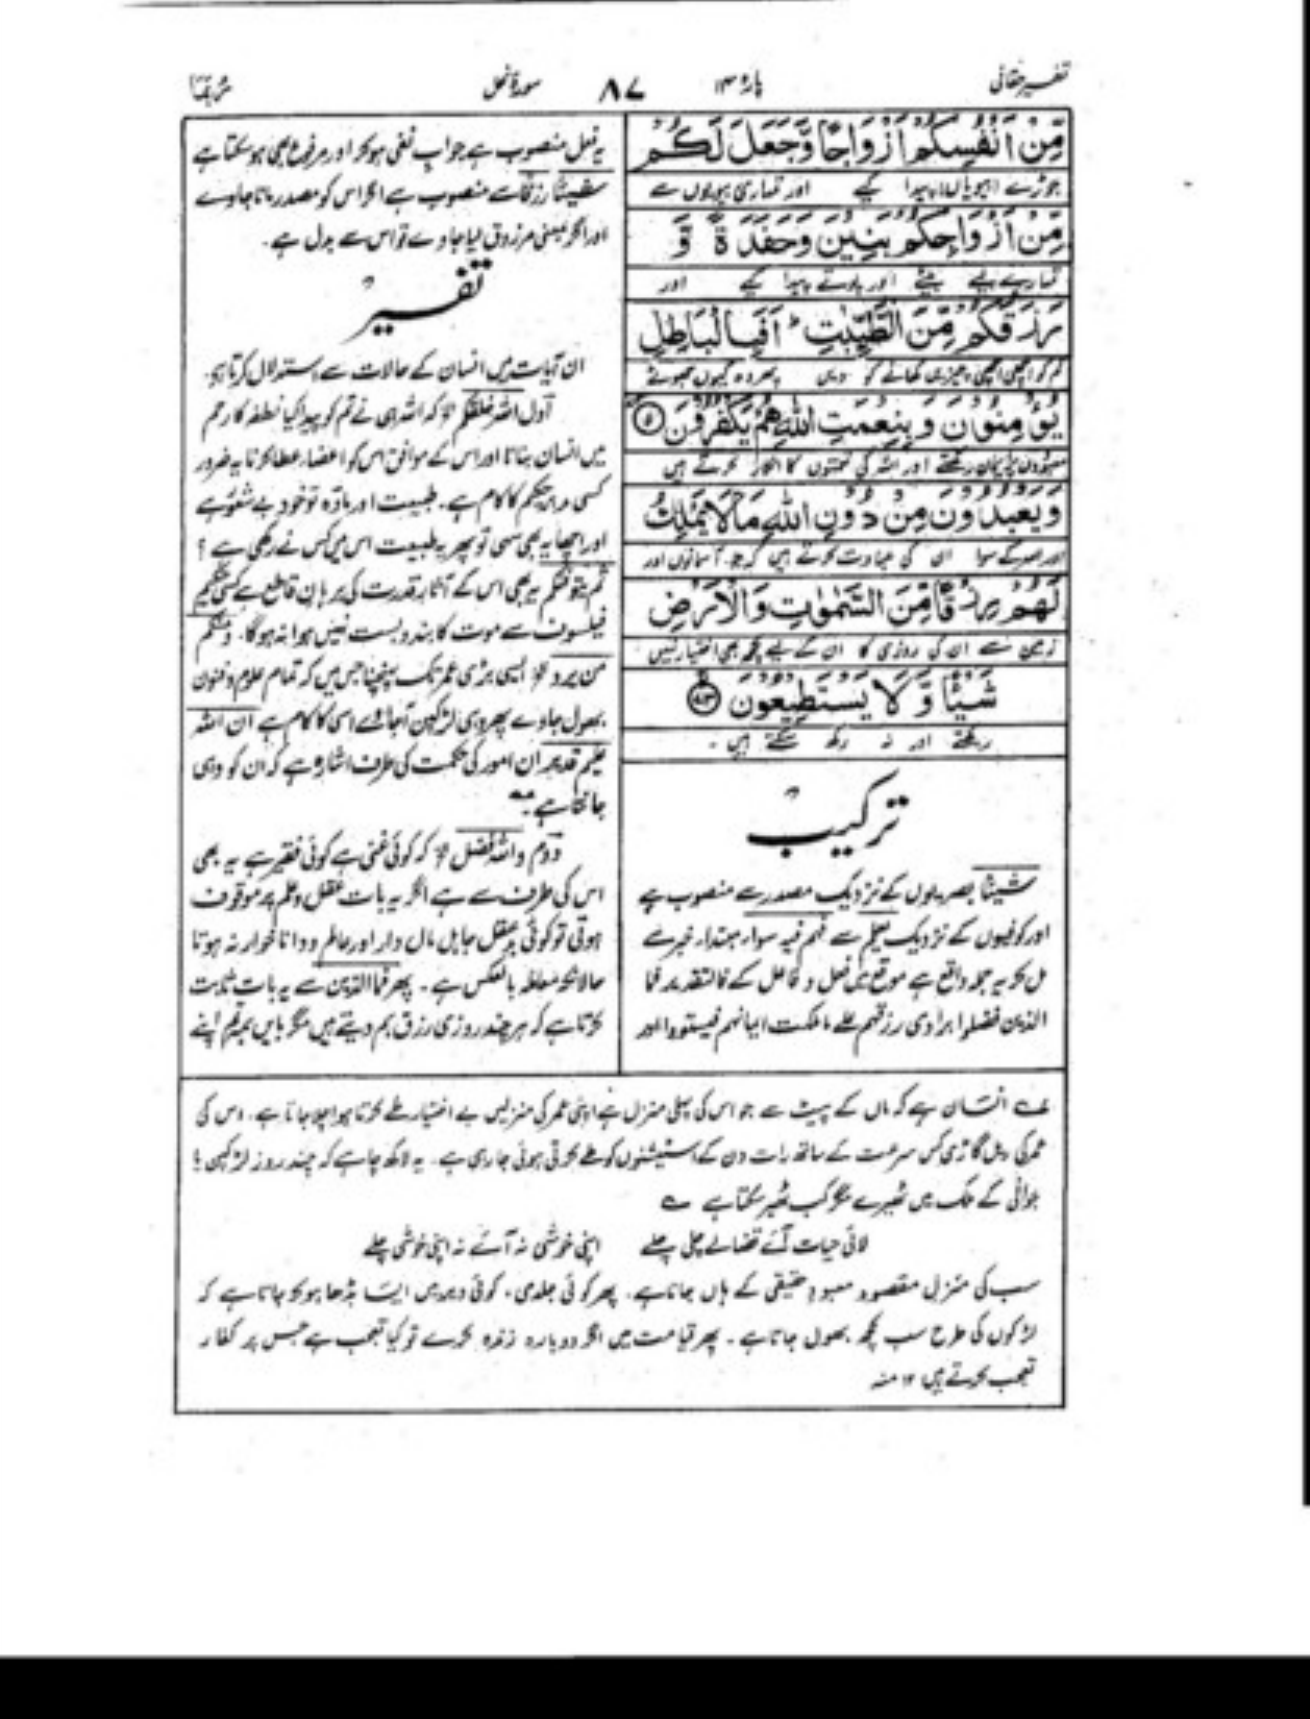 تفسیر حقانی
پارہ ۱۴
۸۷
سورۃ نحل
رُبَمَا
مِّنْ اَنْفُسِكُمْ اَزْوَاجًا وَّجَعَلَ لَكُمْ
جوڑے (بیویاں) پیدا کیے اور تمہاری بیویوں سے
مِّنْ اَزْوَاجِكُمْ بَنِيْنَ وَحَفَدَةً وَّ
تمہارے لیے بیٹے اور پوتے پیدا کیے اور
رَزَقَكُمْ مِّنَ الطَّيِّبٰتِ ؕ اَفَبِالْبَاطِلِ
تم کو اچھی اچھی چیزیں کھانے کو دیں پھر وہ کیوں جھوٹے
يُؤْمِنُوْنَ وَبِنِعْمَتِ اللّٰهِ هُمْ يَكْفُرُوْنَ
معبودوں پر ایمان رکھتے اور اللہ کی نعمتوں کا انکار کرتے ہیں
وَيَعْبُدُوْنَ مِنْ دُوْنِ اللّٰهِ مَا لَا يَمْلِكُ
اور اللہ کے سوا ان کی عبادت کرتے ہیں کہ جو آسمانوں اور
لَهُمْ رِزْقًا مِّنَ السَّمٰوٰتِ وَالْاَرْضِ
زمین سے ان کی روزی کا ان کے لیے کچھ بھی اختیار نہیں
شَيْئًا وَّ لَا يَسْتَطِيْعُوْنَ ﴿۷۳﴾
رکھتے اور نہ رکھ سکتے ہیں ۔
ترکیب
شیئًا بصریوں کے نزدیک مصدر سے منصوب ہے
اور کوفیوں کے نزدیک یعلم سے فہم فیہ سواء مبتداء خبر سے
مل کر یہ جملہ واقع ہے موقع میں فعل و فاعل کے فالتقدیر فما
الذین فضلوا برادی رزقہم علے ما ملکت ایمانہم فیستووا اور
یہ فعل منصوب ہے جواب نفی ہو کر اور مرفوع بھی ہو سکتا ہے
شیئًا رزقًا سے منصوب ہے اگر اس کو مصدر مانا جاوے
اور اگر بمعنی مرزوق لیا جاوے تو اس سے بدل ہے۔
تفسیر
ان آیات میں انسان کے حالات سے استدلال کرتا ہے۔
اول اللہ خلقکم الخ کہ اللہ ہی نے تم کو پیدا کیا نطفہ کا رحم
میں انسان بنانا اور اس کے موافق اس کو اعضاء عطا کرنا یہ ضرور
کسی مدبر حکیم کا کام ہے۔ طبیعت اور مادہ تو خود بے شعور ہے
اور اچھا یہ بھی سہی تو پھر یہ طبیعت اس میں کس نے رکھی ہے ؟
ثم یتوفٰکم یہ بھی اس کے آثار قدرت کی برہان قاطع ہے کسی حکیم
فیلسوف سے موت کا بندوبست نہیں ہوا نہ ہوگا۔ و منکم
من یرد الخ ایسی بڑی عمر تک پہنچنا جس میں کہ تمام علوم و فنون
بھول جاوے پھر وہی لڑکپن آجائے اسی کا کام ہے ان اللہ
علیم قدیر ان امور کی حکمت کی طرف اشارہ ہے کہ ان کو وہی
جانتا ہے۔
دوم واللہ فضل الخ کہ کوئی غنی ہے کوئی فقیر ہے یہ بھی
اس کی طرف سے ہے اگر یہ بات عقل و علم پر موقوف
ہوتی تو کوئی بد عقل جاہل مال دار اور عالم و دانا خوار نہ ہوتا
حالانکہ معاملہ بالعکس ہے۔ پھر فما الذین سے یہ بات ثابت
کرتا ہے کہ ہر چند روزی رزق ہم دیتے ہیں مگر بایں ہمہ تم اپنے
انسان ہے کہ ماں کے پیٹ سے جو اس کی پہلی منزل ہے اپنی عمر کی منزلیں بے اختیار طے کرتا ہوا چلا جاتا ہے۔ اس کی
عمر کی ریل گاڑی کس سرعت کے ساتھ رات دن کے اسٹیشنوں کو طے کرتی ہوئی جا رہی ہے۔ یہ لاکھ چاہے کہ چند روز لڑکپن یا
جوانی کے ملک میں ٹھیرے مگر کب ٹھیر سکتا ہے ؎
لائی حیات آئے قضا لے چلی چلے اپنی خوشی نہ آئے نہ اپنی خوشی چلے
سب کی منزل مقصود معبود حقیقی کے ہاں جانا ہے۔ پھر کوئی جلدی، کوئی دیر میں ایسا بڈھا ہو کر جاتا ہے کہ
لڑکوں کی طرح سب کچھ بھول جاتا ہے۔ پھر قیامت میں اگر دوبارہ زندہ کرے تو کیا تعجب ہے جس پر کفار
تعجب کرتے ہیں ۱۲ منہ